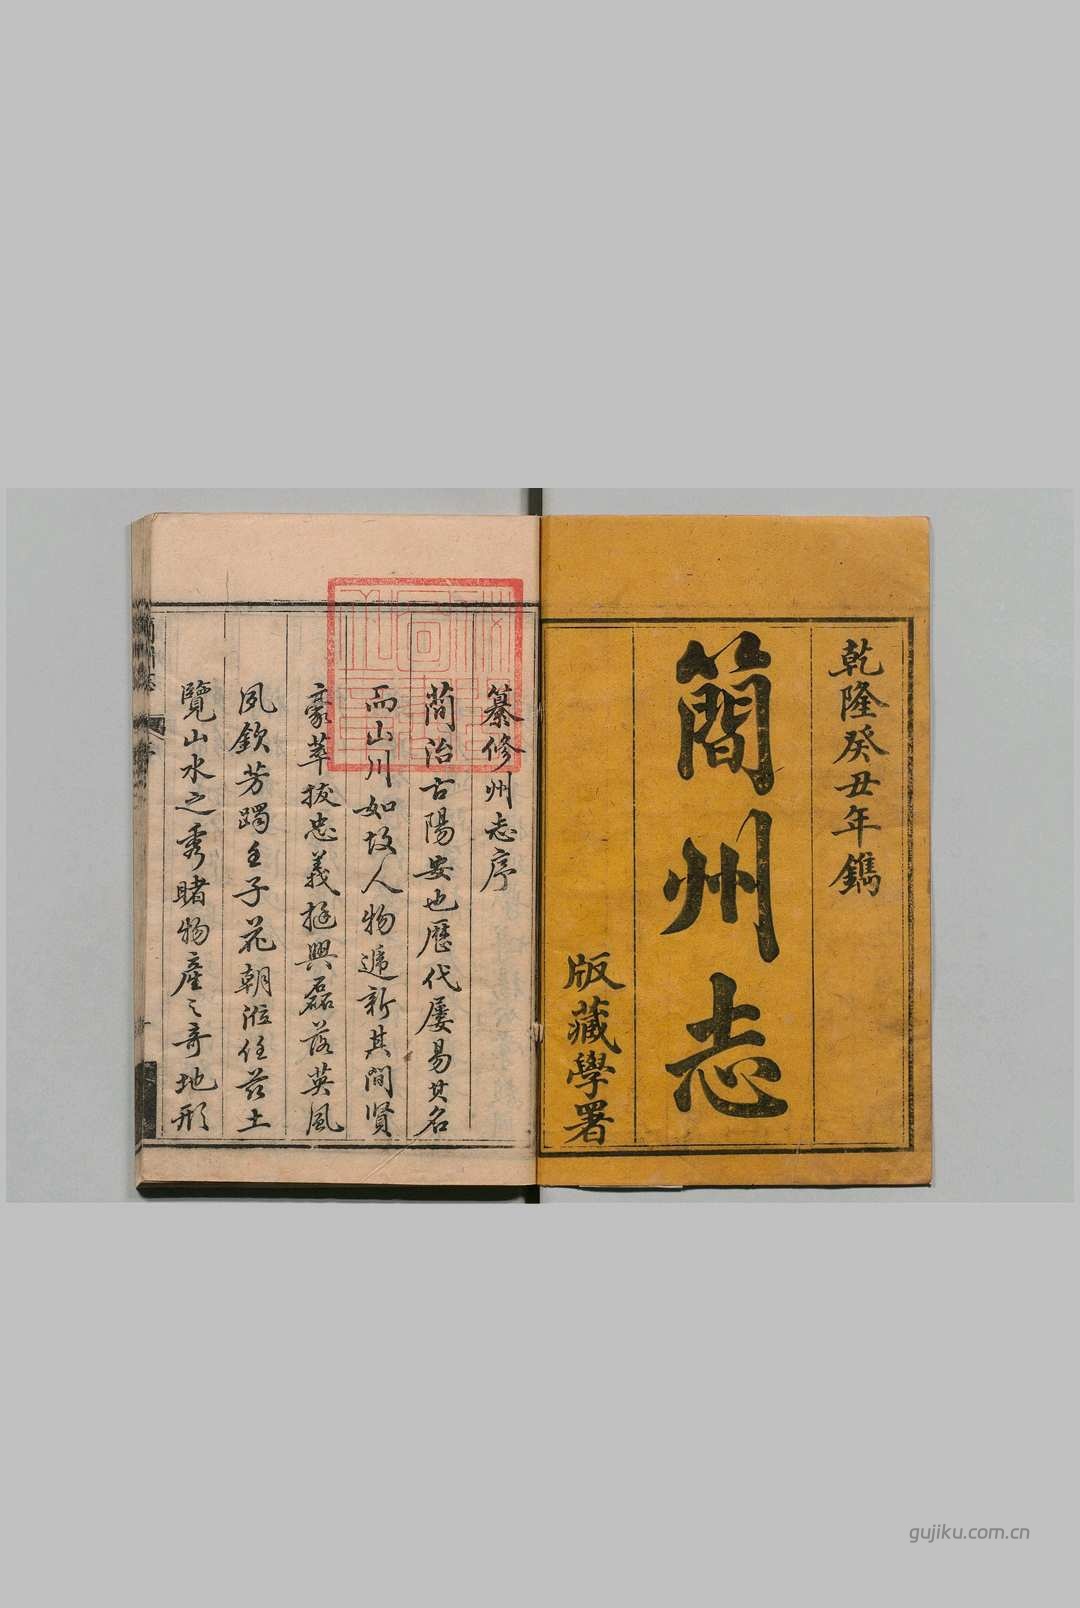 乾隆癸丑年鐫
簡州志
版藏學署
纂修州志序
簡治古陽安也歷代屢易其名
而山川如故人物遞新其間賢
豪萃拔忠義挺興磊落英風
夙欽芳躅壬子花朝涖任茲土
覽山水之秀睹物產之奇地形
gujiku.com.cn